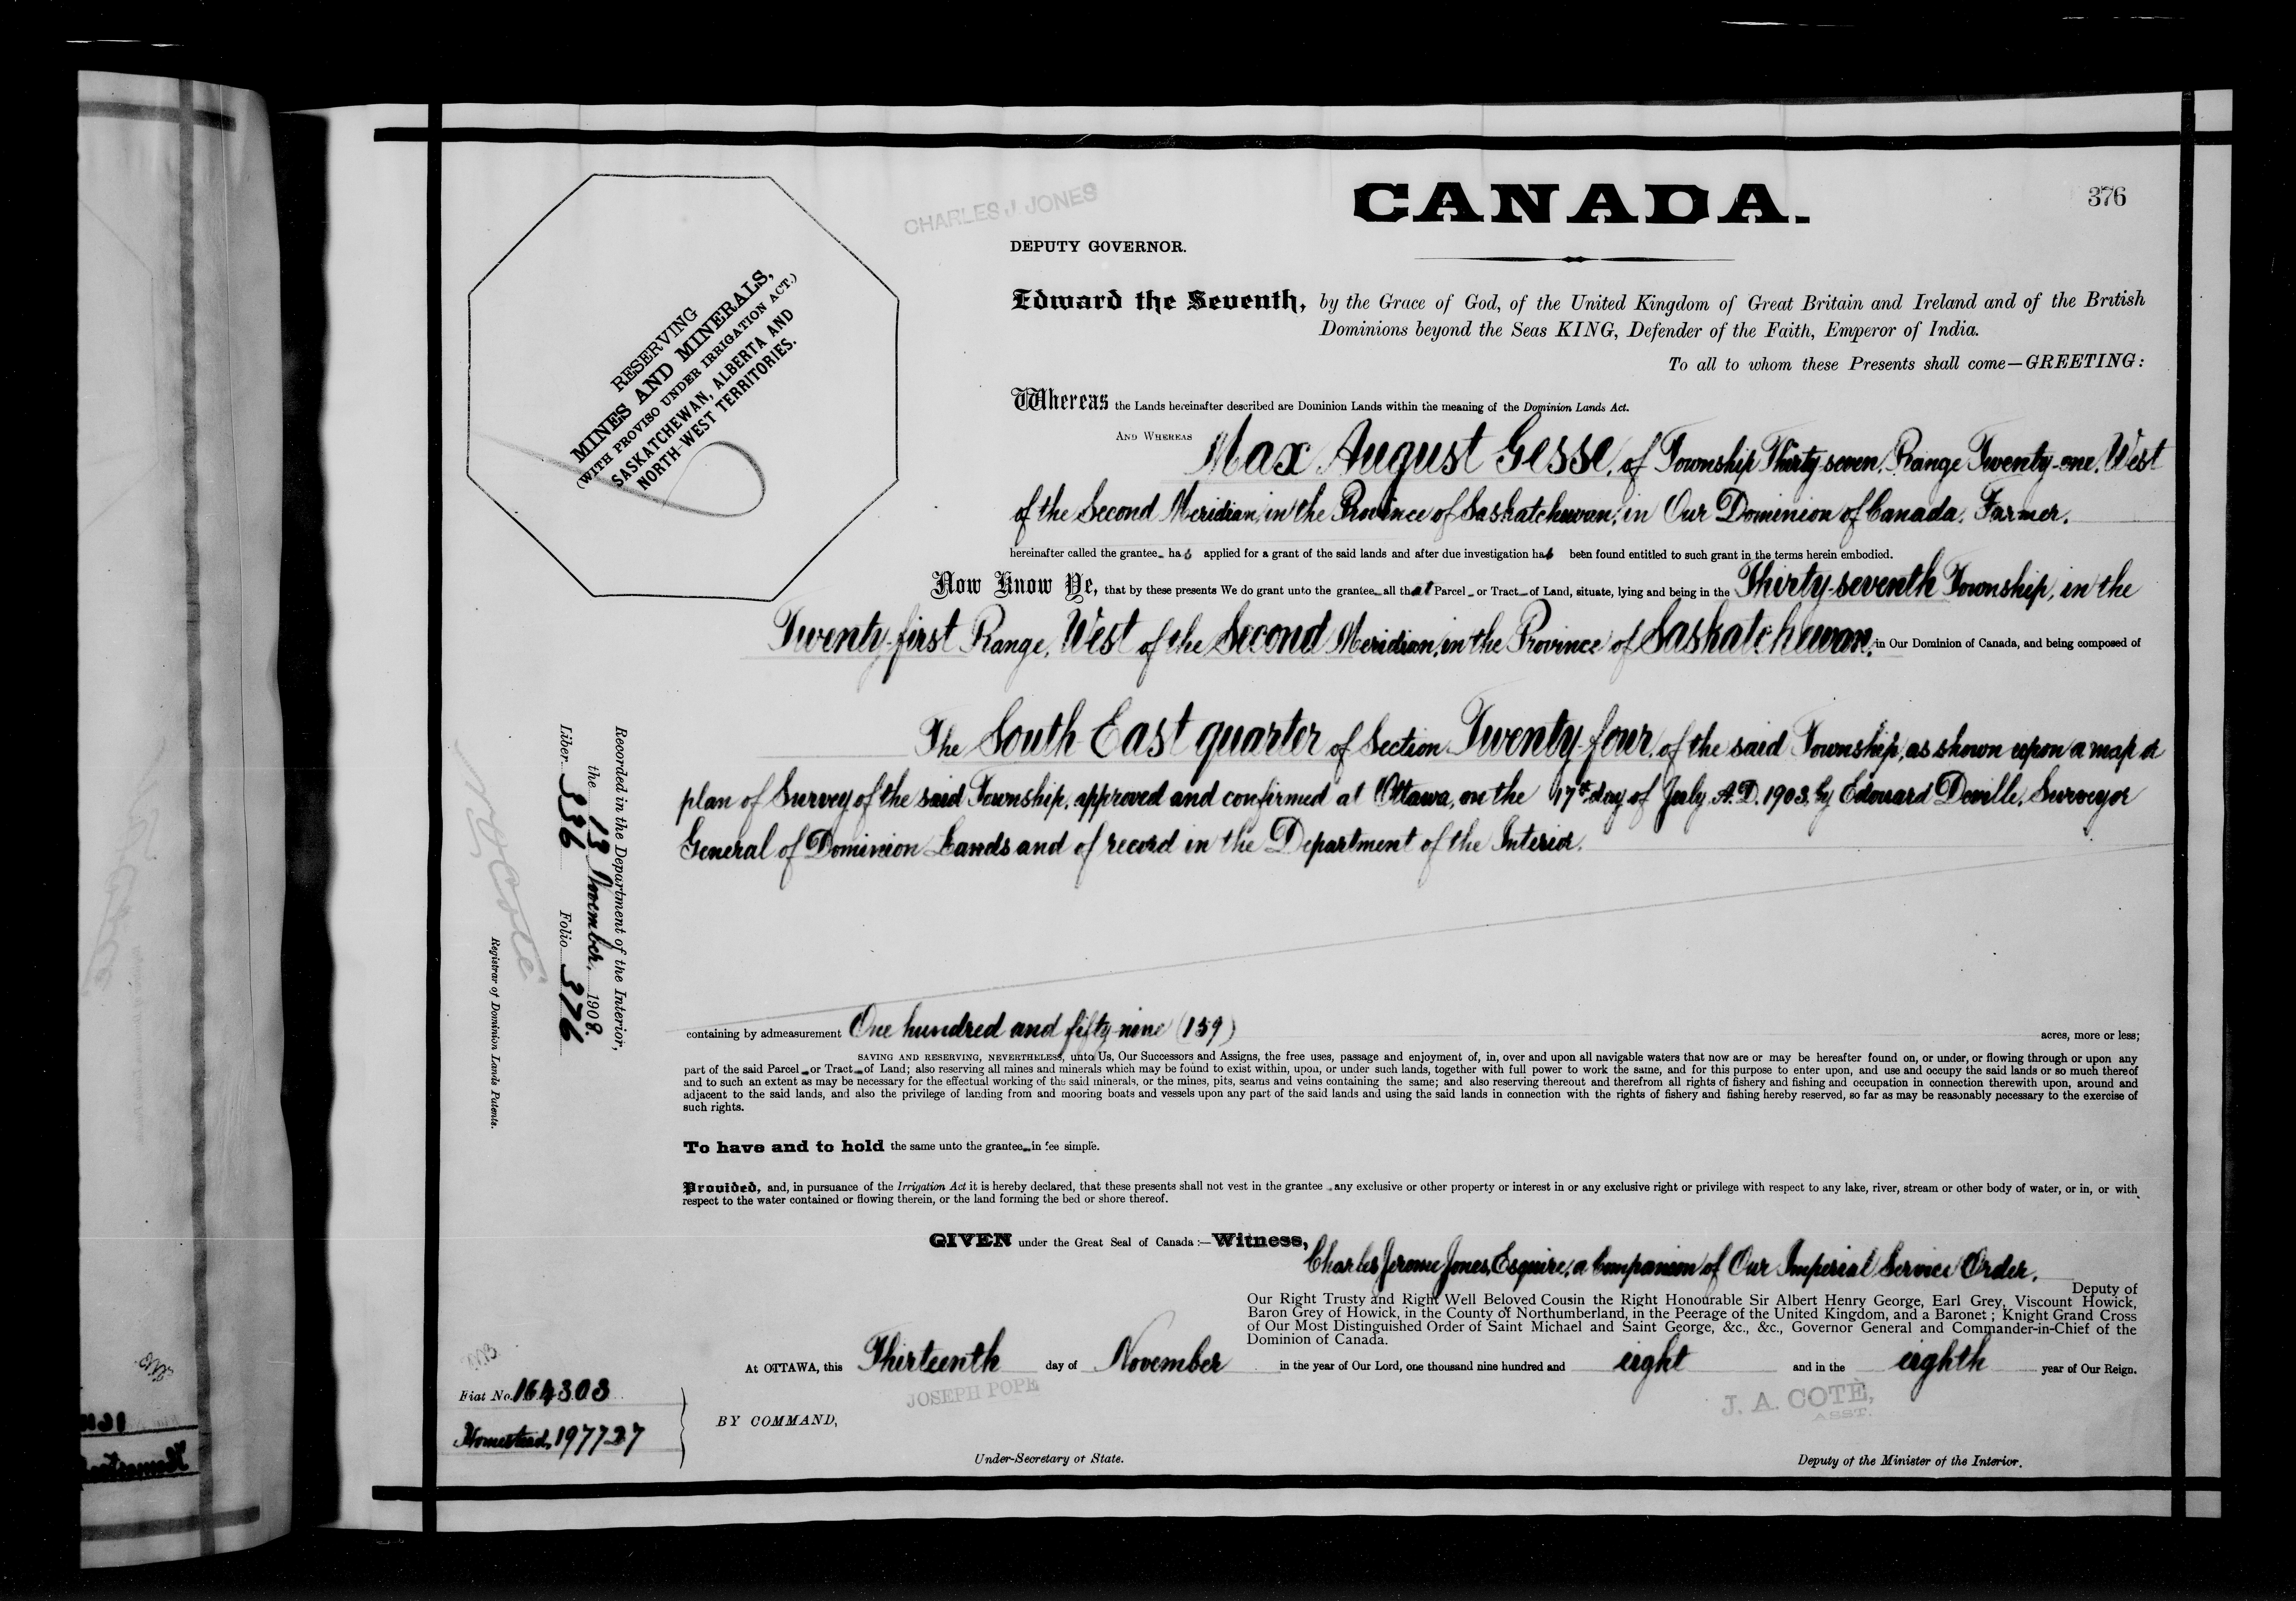 CHARLES J. JONES
CANADA.
376
DEPUTY GOVERNOR.
RESERVING
MINES AND MINERALS,
(WITH PROVISO UNDER IRRIGATION ACT.)
SASKATCHEWAN, ALBERTA AND
NORTH-WEST TERRITORIES.
Edward the Seventh, by the Grace of God, of the United Kingdom of Great Britain and Ireland and of the British
Dominions beyond the Seas KING, Defender of the Faith, Emperor of India.
To all to whom these Presents shall come—GREETING:
Whereas the Lands hereinafter described are Dominion Lands within the meaning of the Dominion Lands Act.
AND WHEREAS Max August Gesse, of Township Thirty-seven, Range Twenty-one, West
of the Second Meridian, in the Province of Saskatchewan, in Our Dominion of Canada, Farmer,
hereinafter called the grantee has applied for a grant of the said lands and after due investigation has been found entitled to such grant in the terms herein embodied.
Now Know Ye, that by these presents We do grant unto the grantee all that Parcel or Tract of Land, situate, lying and being in the Thirty-seventh Township, in the
Twenty-first Range, West of the Second Meridian, in the Province of Saskatchewan, in Our Dominion of Canada, and being composed of
The South East quarter of Section Twenty-four, of the said Township, as shown upon a map or
plan of Survey of the said Township, approved and confirmed at Ottawa, on the 17th day of July, A.D. 1903, by Edouard Deville, Surveyor
General of Dominion Lands and of record in the Department of the Interior.
Recorded in the Department of the Interior,
the 13 November, 1908.
Liber 336 Folio 376
N.O. Coté
Registrar of Dominion Lands Patents.
containing by admeasurement One hundred and fifty-nine (159) acres, more or less;
SAVING AND RESERVING, NEVERTHELESS, unto Us, Our Successors and Assigns, the free uses, passage and enjoyment of, in, over and upon all navigable waters that now are or may be hereafter found on, or under, or flowing through or upon any
part of the said Parcel or Tract of Land; also reserving all mines and minerals which may be found to exist within, upon, or under such lands, together with full power to work the same, and for this purpose to enter upon, and use and occupy the said lands or so much thereof
and to such an extent as may be necessary for the effectual working of the said minerals, or the mines, pits, seams and veins containing the same; and also reserving thereout and therefrom all rights of fishery and fishing and occupation in connection therewith upon, around and
adjacent to the said lands, and also the privilege of landing from and mooring boats and vessels upon any part of the said lands and using the said lands in connection with the rights of fishery and fishing hereby reserved, so far as may be reasonably necessary to the exercise of
such rights.
To have and to hold the same unto the grantee in fee simple.
Provided, and, in pursuance of the Irrigation Act it is hereby declared, that these presents shall not vest in the grantee any exclusive or other property or interest in or any exclusive right or privilege with respect to any lake, river, stream or other body of water, or in, or with
respect to the water contained or flowing therein, or the land forming the bed or shore thereof.
GIVEN under the Great Seal of Canada:—Witness, Charles Jerome Jones, Esquire, a Companion of Our Imperial Service Order,
Deputy of
Our Right Trusty and Right Well Beloved Cousin the Right Honourable Sir Albert Henry George, Earl Grey, Viscount Howick,
Baron Grey of Howick, in the County of Northumberland, in the Peerage of the United Kingdom, and a Baronet; Knight Grand Cross
of Our Most Distinguished Order of Saint Michael and Saint George, &c., &c., Governor General and Commander-in-Chief of the
Dominion of Canada.
At OTTAWA, this Thirteenth day of November in the year of Our Lord, one thousand nine hundred and eight and in the eighth year of Our Reign.
Fiat No. 164303
Homestead, 197737
JOSEPH POPE
J. A. COTÈ,
ASST.
BY COMMAND,
Under-Secretary of State.
Deputy of the Minister of the Interior.